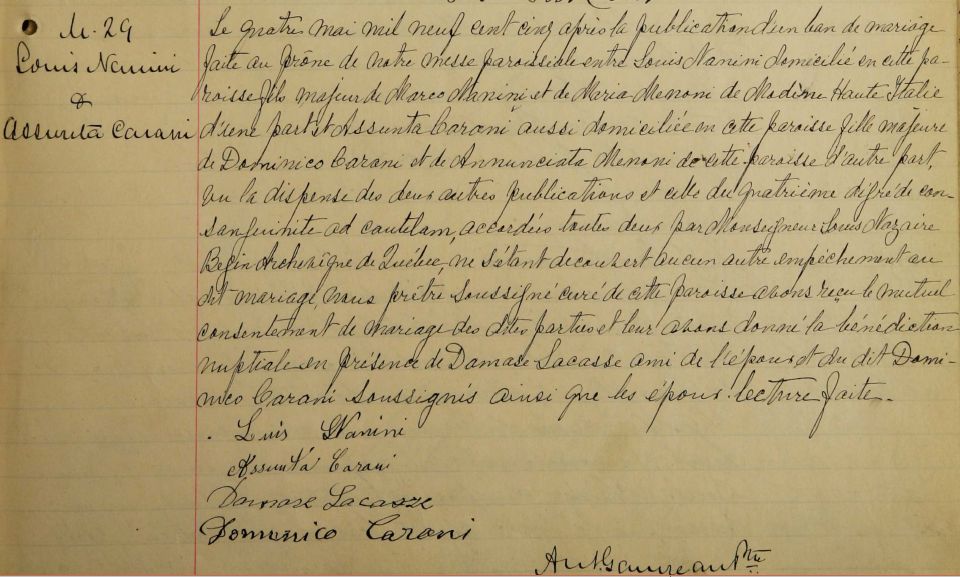 M. 29
Louis Nanini
&
Assunta Carani
Le quatre mai mil neuf cent cinq après la publication d'un ban de mariage
faite au prône de notre messe paroissiale entre Louis Nanini domicilié en cette pa-
roisse fils majeur de Marco Nanini et de Maria Menoni de Modène Haute Italie
d'une part et Assunta Carani aussi domiciliée en cette paroisse fille majeure
de Dominico Carani et de Annunciata Menoni de cette paroisse d'autre part,
vu la dispense des deux autres publications et celle du quatrième dégré de con-
sanguinité ad cautelam, accordées toutes deux par Monseigneur Louis Nazaire
Begin Archevêque de Québec, ne s'étant découvert aucun autre empêchement au
dit mariage, nous prêtre soussigné curé de cette paroisse avons reçu le mutuel
consentement de mariage des dites parties et leur avons donné la bénédiction
nuptiale en présence de Damase Lacasse ami de l'époux et du dit Domi-
nico Carani soussignés ainsi que les époux. Lecture faite.
Luis Nanini
Assunta Carani
Damase Lacasse
Domenico Carani
Ptre